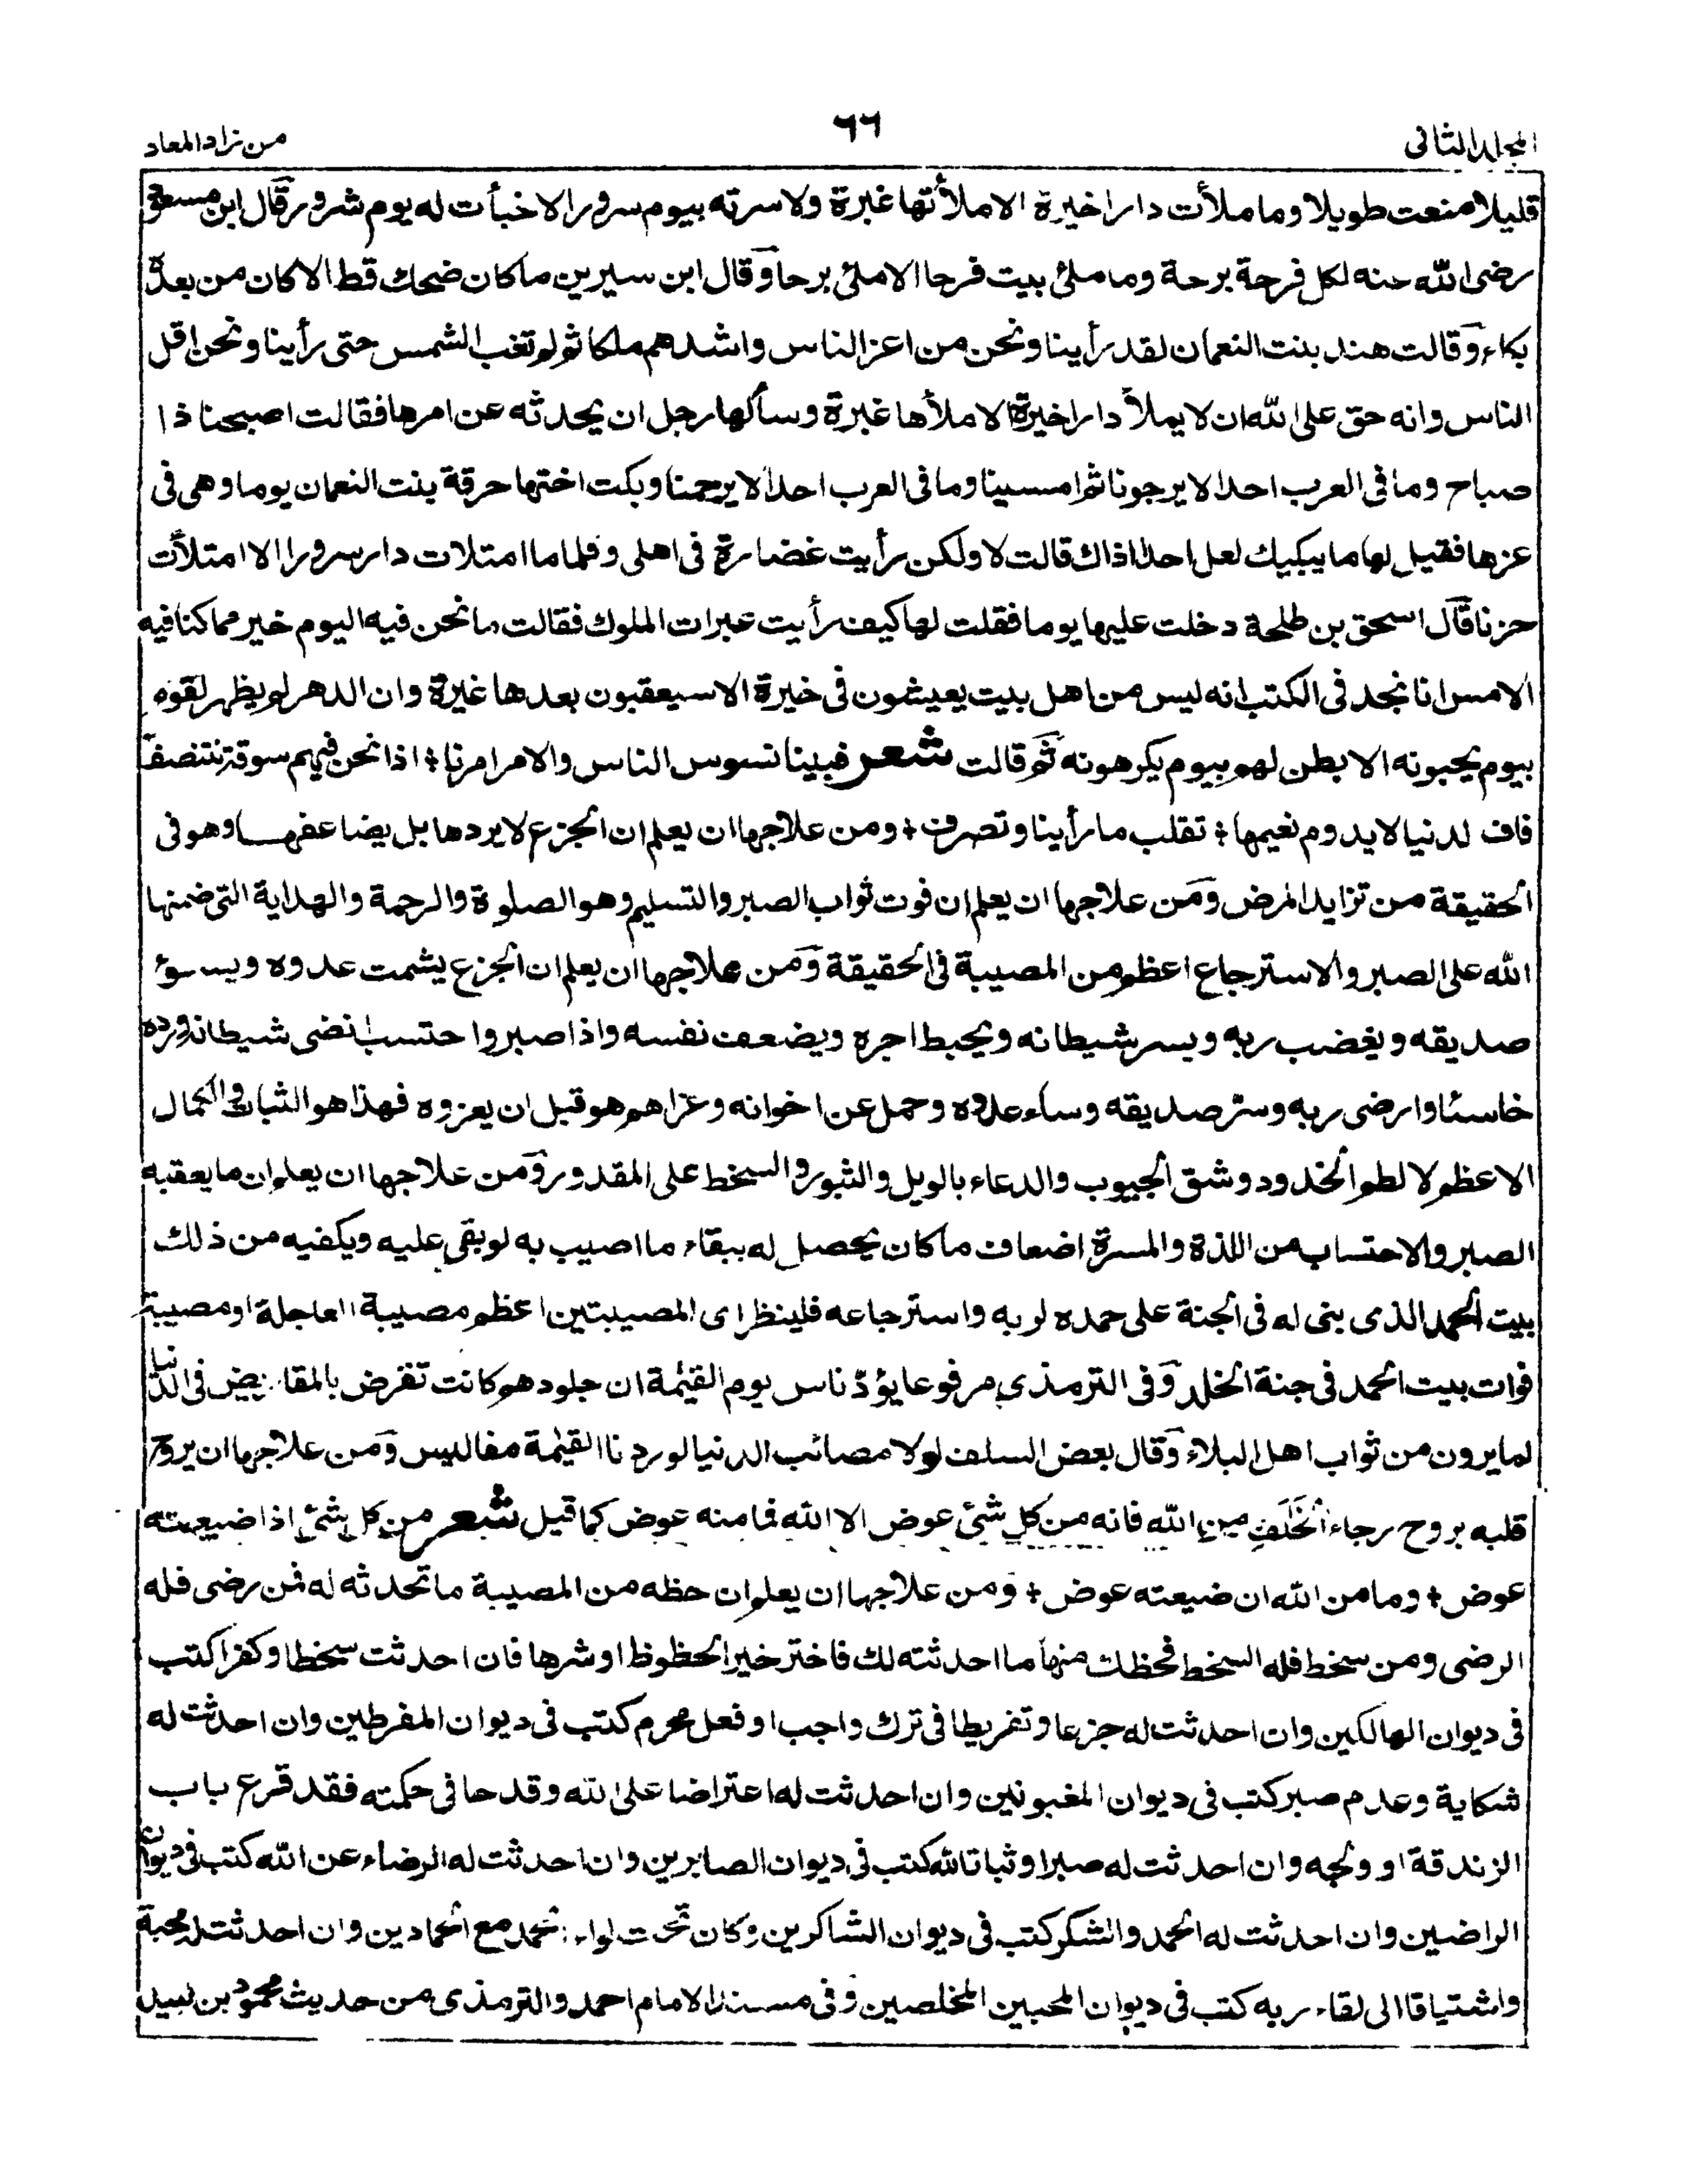 المجلد الثانى
٦٦
من زاد المعاد
قليلا منعت طويلا وما ملأت دارا خيرة الا ملأتها غبرة ولا سرته بيوم سرور الا خبأت له يوم شرور وقال ابن مسعود
رضى الله عنه لكل فرحة برحة وما ملئ بيت فرحا الا ملئ برحا وقال ابن سيرين ماكان ضحك قط الا كان من بعده
بكاء وقالت هند بنت النعمان لقد رأيتنا ونحن من اعز الناس واشدهم ملكا ثم لم تغب الشمس حتى رأيتنا ونحن اقل
الناس وانه حق على الله ان لا يملأ دارا خيرة الا ملأها غبرة وسألها رجل ان يحدثه عن امرها فقالت اصبحنا ذا
صباح وما فى العرب احد الا يرجونا ثم امسينا وما فى العرب احد الا يرحمنا وبكت اختها حرقة بنت النعمان يوما وهى فى
عزها فقيل لها ما يبكيك لعل احدا اذاك قالت لا ولكن رأيت غضارة فى اهلى وقلما ما امتلات دار سرورا الا امتلأت
حزنا قال اسحق بن طلحة دخلت عليها يوما فقلت لها كيف رأيت عبرات الملوك فقالت ما نحن فيه اليوم خير مما كنا فيه
الامس انا نجد فى الكتب انه ليس من اهل بيت يعيشون فى خيرة الا سيعقبون بعدها غيرة وان الدهر لم يظهر لقوم
بيوم يحبونه الا بطن لهم بيوم يكرهونه ثم قالت شعر فبينا نسوس الناس والامر امرنا ؛ اذا نحن فيهم سوقة نتنصف
فاف لدنيا لا يدوم نعيمها ؛ تقلب مارأينا وتصرف ؛ ومن علاجها ان يعلم ان الجزع لا يردها بل يضاعفها وهو فى
الحقيقة من تزايد المرض ومن علاجها ان يعلم ان فوت ثواب الصبر والتسليم وهو الصلوة والرحمة والهداية التى ضمنها
الله على الصبر والاسترجاع اعظم من المصيبة فى الحقيقة ومن علاجها ان يعلم ان الجزع يشمت عدوه ويسوء
صديقه ويغضب ربه ويسر شيطانه ويحبط اجره ويضعف نفسه واذا صبر واحتسب انضى شيطانه ورده
خاسئا وارضى ربه وسر صديقه وساء عدوه وحمل عن اخوانه وعزاهم هو قبل ان يعزوه فهذا هو الثبات والكمال
الاعظم لا لطم الخدود وشق الجيوب والدعاء بالويل والثبور والسخط على المقدور ومن علاجها ان يعلم ان مايعقبه
الصبر والاحتساب من اللذة والمسرة اضعاف ماكان يحصل له ببقاء ما اصيب به لو بقى عليه ويكفيه من ذلك
بيت الحمد الذى بنى له فى الجنة على حمده لربه واسترجاعه فلينظر اى المصيبتين اعظم مصيبة العاجلة او مصيبة
فوات بيت الحمد فى جنة الخلد وفى الترمذى مرفوعا يؤد ناس يوم القيمة ان جلودهم كانت تقرض بالمقاريض فى الدنيا
لما يرون من ثواب اهل البلاء وقال بعض السلف لولا مصائب الدنيا لوردنا القيمة مفاليس ومن علاجها ان يروح
قلبه بروح رجاء الخَلَفِ من الله فانه من كل شئ عوض الا الله فما منه عوض كما قيل شعر من كل شئ اذا ضيعته
عوض ؛ وما من الله ان ضيعته عوض ؛ ومن علاجها ان يعلم ان حظه من المصيبة ما تحدثه له فمن رضى فله
الرضى ومن سخط فله السخط فحظك منها ما احدثته لك فاختر خير الحظوظ او شرها فان احدثت سخطا وكفرا كتب
فى ديوان الهالكين وان احدثت له جزعا وتفريطا فى ترك واجب او فعل محرم كتب فى ديوان المفرطين وان احدثت له
شكاية وعدم صبر كتب فى ديوان المغبونين وان احدثت له اعتراضا على الله وقدحا فى حكمته فقد قرع باب
الزندقة او ولجه وان احدثت له صبرا وثباتا لله كتب فى ديوان الصابرين وان احدثت له الرضاء عن الله كتب فى ديوان
الراضين وان احدثت له الحمد والشكر كتب فى ديوان الشاكرين وكان تحت لواء الحمد مع الحمادين وان احدثت له محبة
واشتياقا الى لقاء ربه كتب فى ديوان المحبين المخلصين وفى مسند الامام احمد والترمذى من حديث محمود بن لبيد